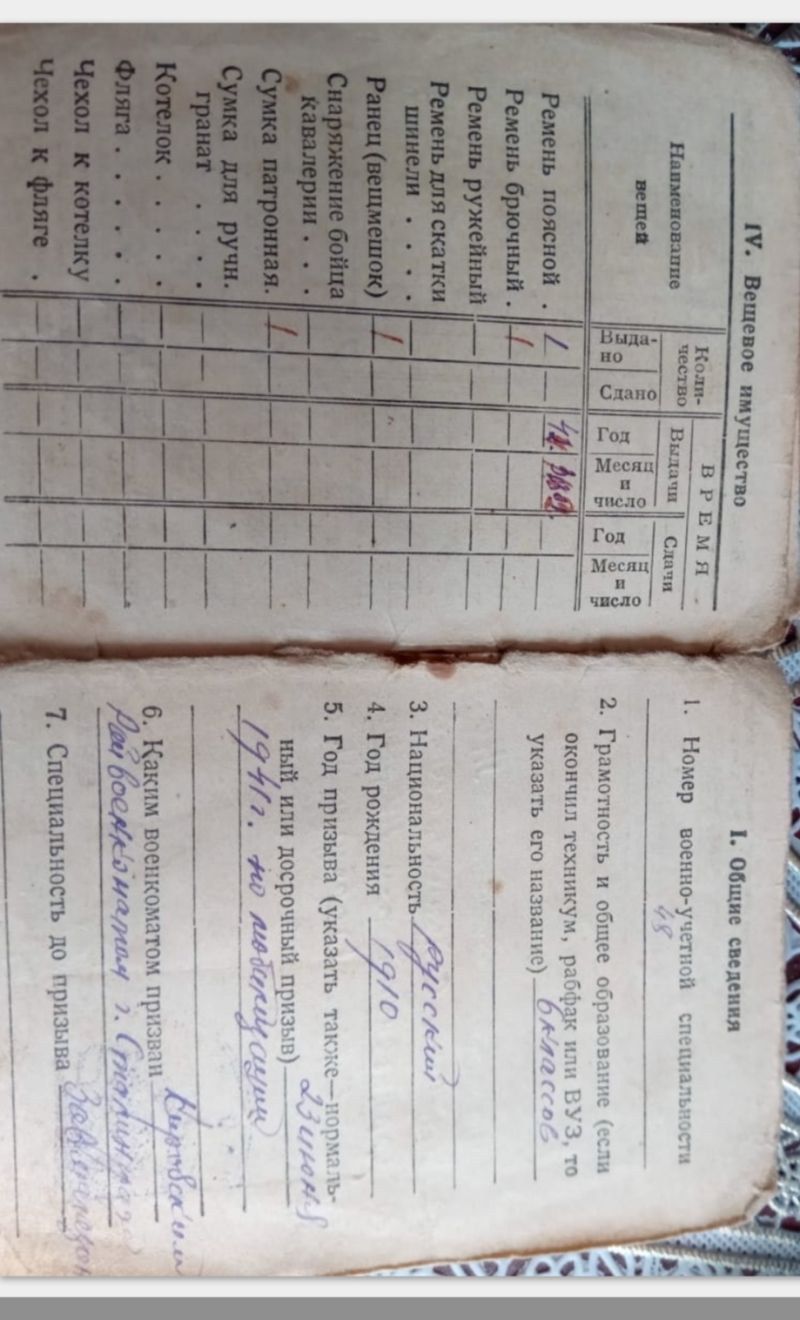 IV. Вещевое имущество
Наименование вещей
Коли-
чество
ВРЕМЯ
Выдачи
Сдачи
Выда-
но
Сдано
Год
Месяц и число
Год
Месяц и число
Ремень поясной . 1 — 41.
Ремень брючный . 1
Ремень ружейный —
Ремень для скатки
шинели . . . . —
Ранец (вещмешок) 1
Снаряжение бойца
кавалерии . . . —
Сумка патронная. 1
Сумка для ручн.
гранат . . . . —
Котелок . . . . . —
Фляга . . . . . . —
Чехол к котелку —
Чехол к фляге . —
I. Общие сведения
1. Номер военно-учетной специальности
48
2. Грамотность и общее образование (если
окончил техникум, рабфак или ВУЗ, то
указать его название) 6 классов
3. Национальность русский
4. Год рождения 1910
5. Год призыва (указать также—нормаль-
ный или досрочный призыв) 23 июня
1941г. по мобилизации
6. Каким военкоматом призван Кировским
Райвоенкоматом г.
7. Специальность до призыва